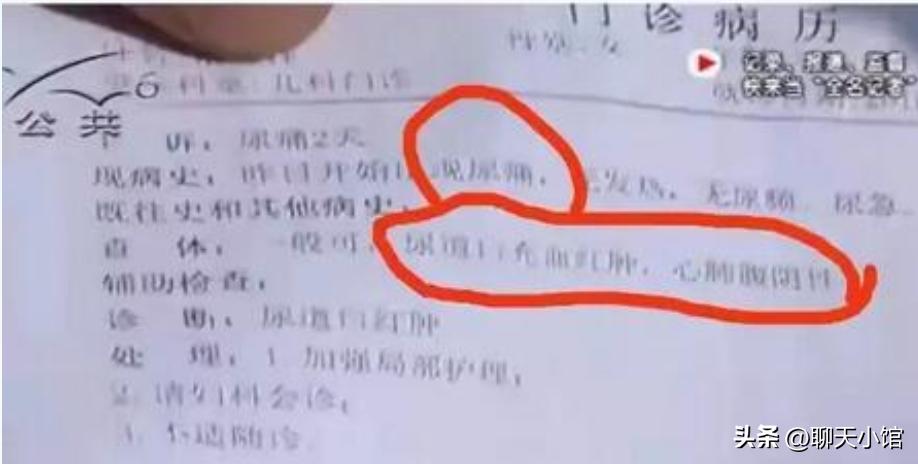 门诊病历
性别：女
科室：儿科门诊
记录、报道、监督
快来当“全名记者”
6
公共
诉：尿痛2天
现病史：昨日开始出现尿痛，无发热，无尿频、尿急
既往史和其他病史：
查体：一般可，尿道口充血红肿，心肺腹阴性
辅助检查：
诊断：尿道口红肿
处理：1 加强局部护理；
2.请妇科会诊；
3.不适随诊
头条 @聊天小馆